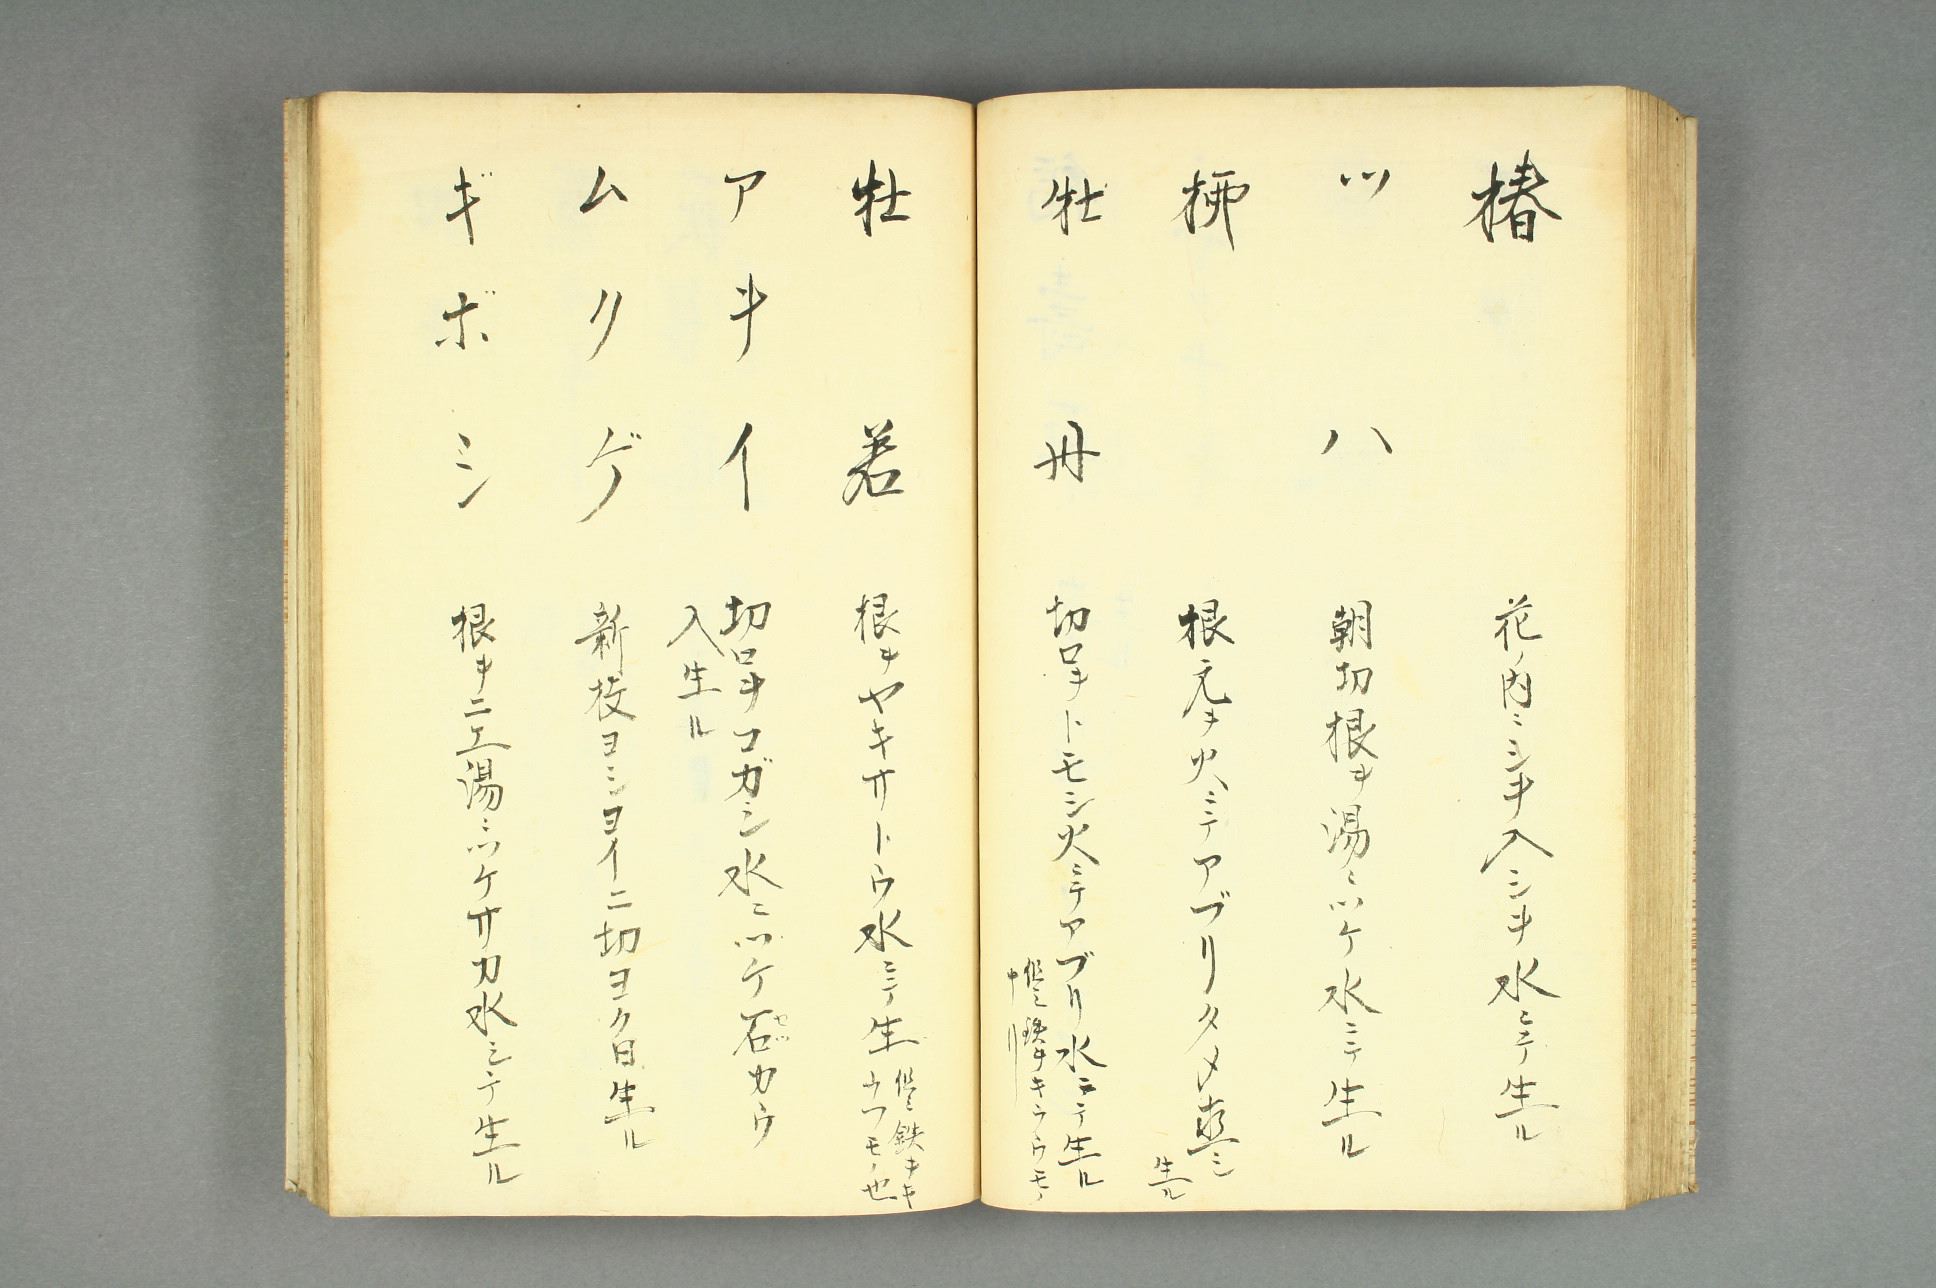 椿 花ノ内ニシヲ入シヲ水ニテ生ル
ツハ 朝切根ヲ湯ニツケ水ニテ生ル
柳 根元ヲ火ニテアブリタメ
生ル
牡丹 切口ヲトモシ火ニテアブリ水ニテ生ル
牡若 根ヲヤキサトウ水ニテ生
鉄ヲキ
ウフモノ也
アヲイ 切口ヲコガシ水ニツケ石カウ
入生ル
ムクゲ 新枝ヨシヨイニ切ヨク日生ル
ギボシ 根ヲニエ湯ニツケサカ水ニテ生ル